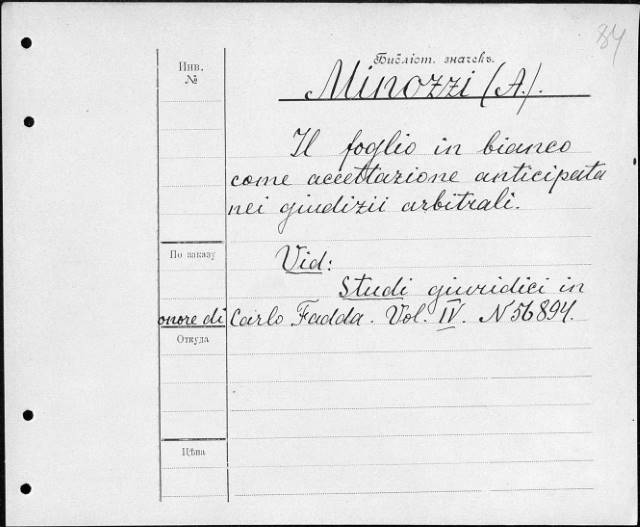 84
Инв.
№
Библіот. значекъ.
Minozzi (A.).
Il foglio in bianco
come accettazione anticipata
nei giudizii arbitrali.
По заказу
Vid:
Studi giuridici in
onore di Carlo Fadda. Vol. IV. N 56894.
Откуда
Цѣна